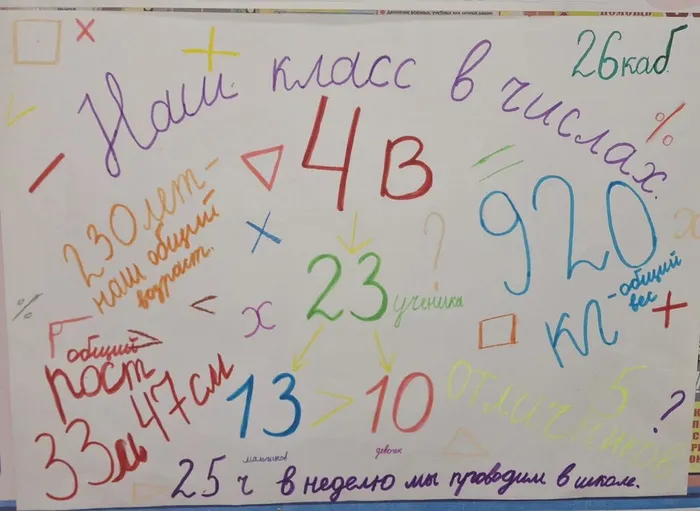 Наш класс в числах.
26 каб.
4 В
230 лет -
наш общий
возраст.
920
кг
- общий
вес
23
ученика
общий
рост
33м 47 см
13 > 10
мальчиков
девочек
5
отличников
25 ч в неделю мы проводим в школе.